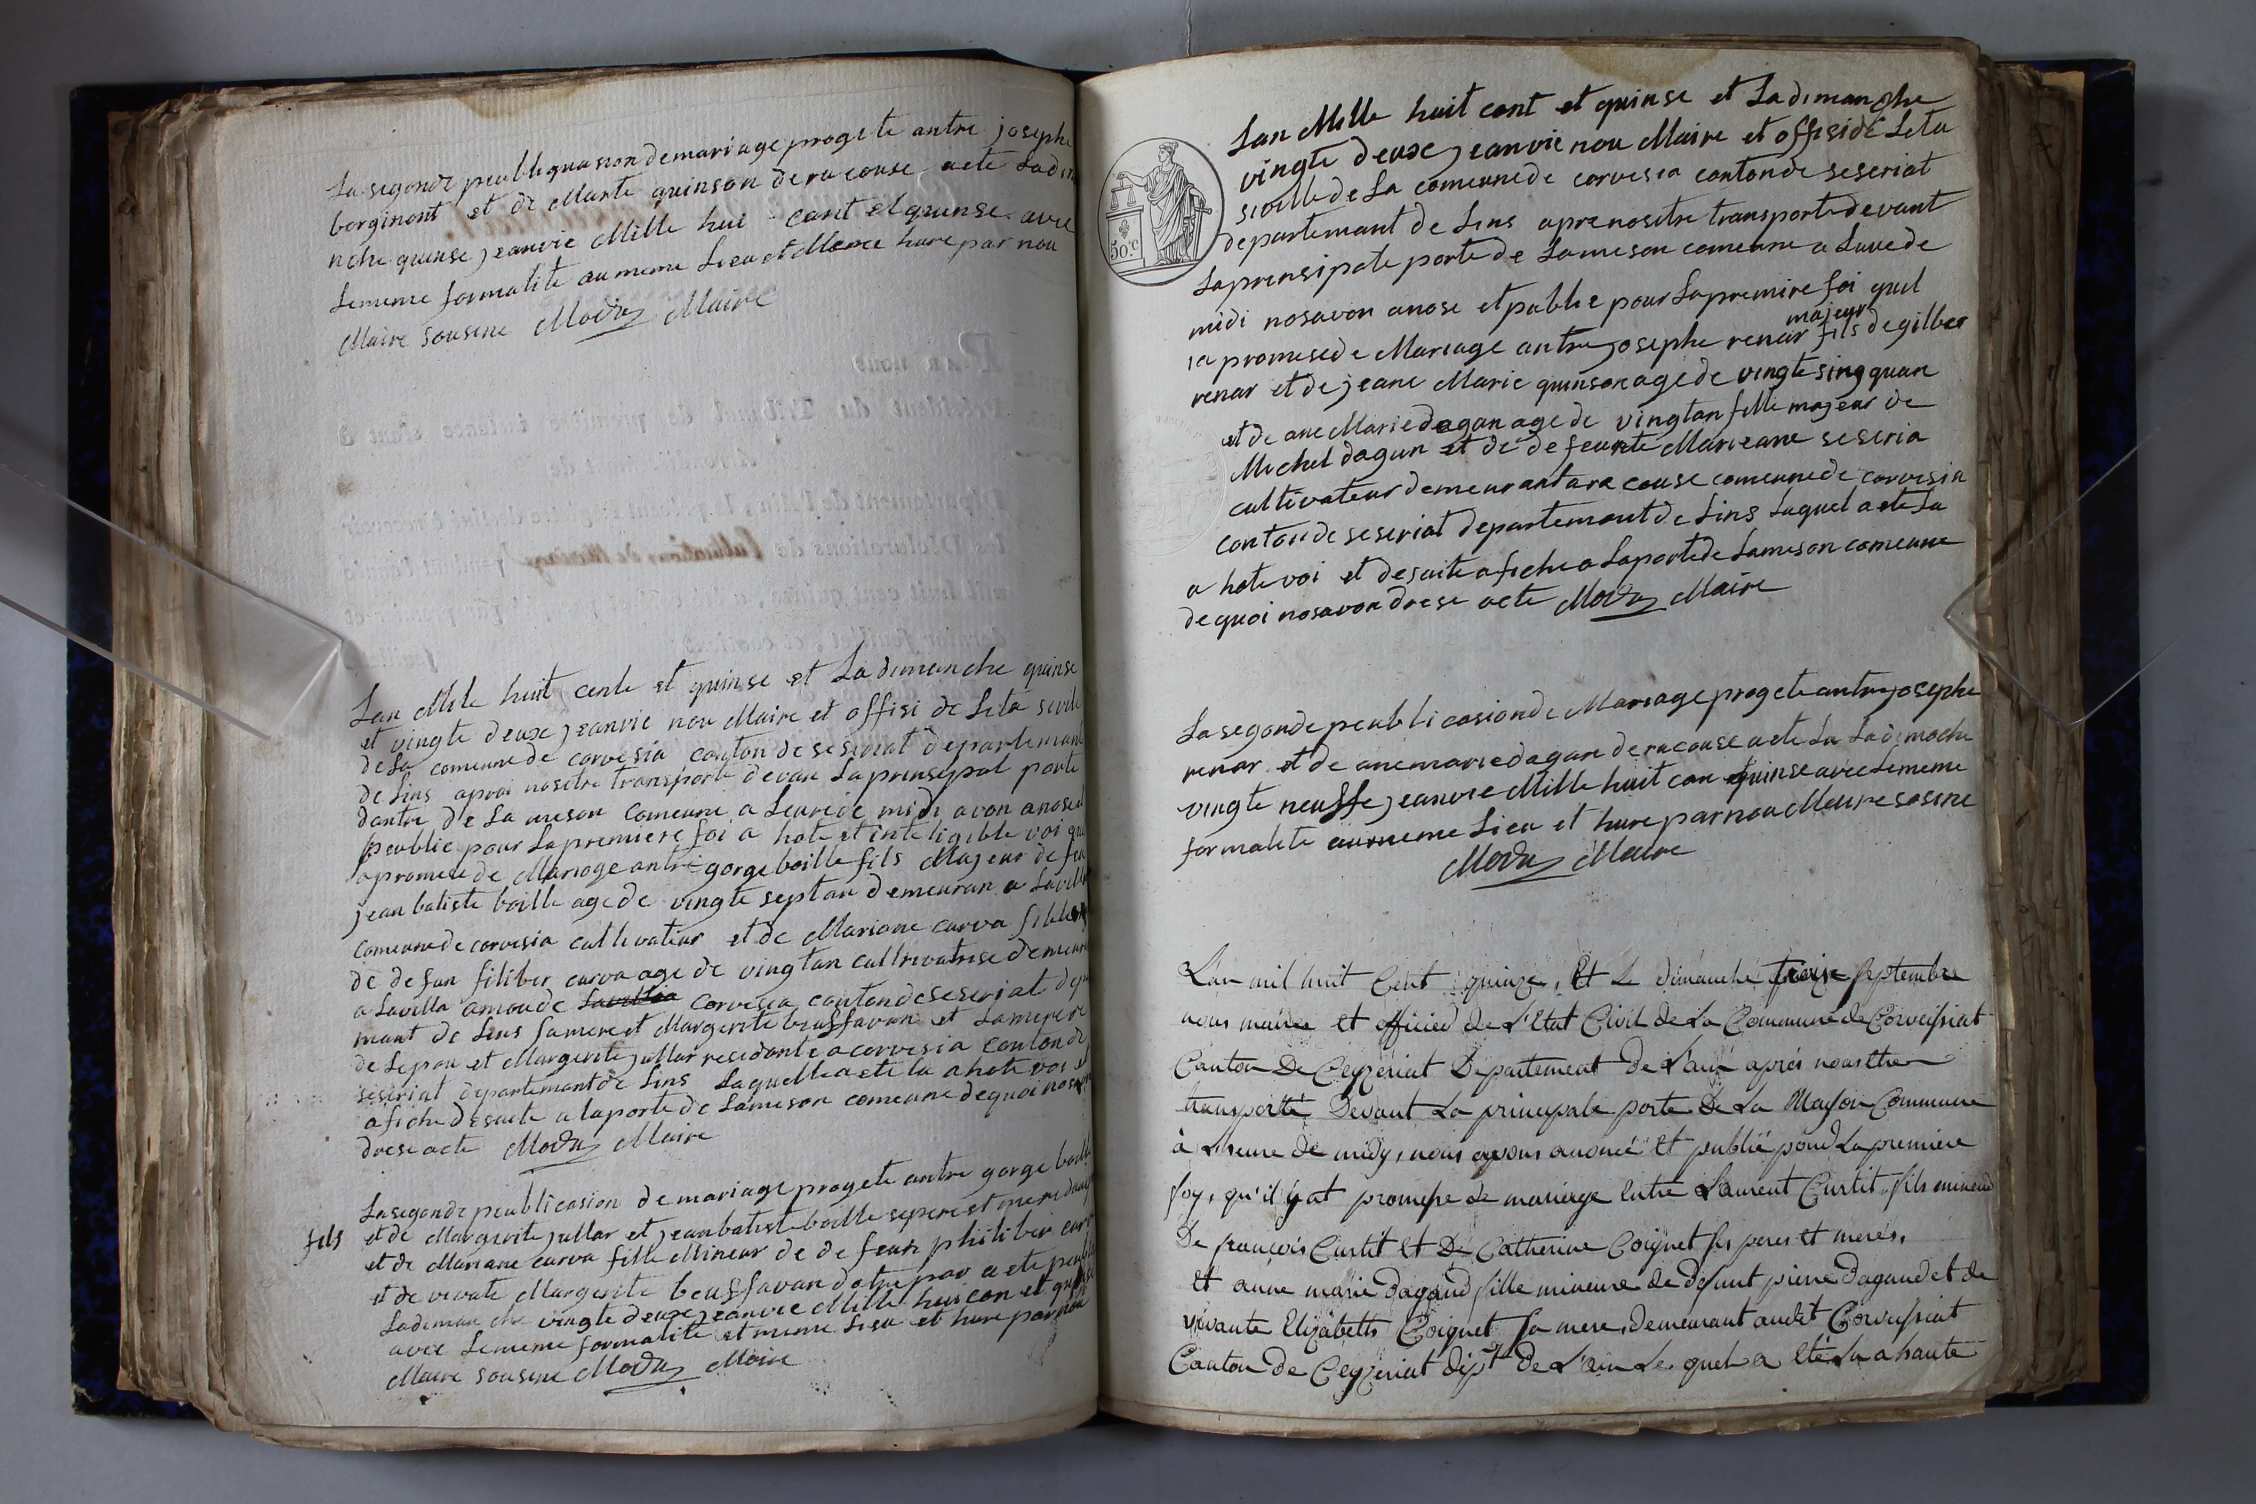 La segonde peubliquasion de mariage progete antre josephe
borginont et de Marite quinson de racouse a ete La dim
nche quinse jeanvie Mille hui cent et quinse avec
Lememe formalite au meme Lieu et Meme hure par nou
Maire sousine Modas Maire
Lan Mile huit cente et quinse et La dimanche quinse
et vingte deuxe jeanvie nou Maire et offisi de Leta sivile
de La comeune de corvesia canton de seseriat departemant
de Lins aprai nositre transporte devan La prinsipal porte
dantre de La meson comeune a Leure de midi avon anose et
peublie pour La premiere foi a hote et inteligible voi que
a promese de Mariage antre gorge boille fils Majeur de feu
jean batiste boille age de vingte septan demeuran a Lavilla
comeune de corvesia cultivateur et de Mariane curva fille
de defun filiber curva age de vingtan cultivatrise demeur
a Lavilla comeude corvesia canton de seseriat depar
mant de Lins sa mere et Margerite beuffavan et La mere
de Lepou et Margerite jullar residante a corvesia canton de
seseriat departemant de Lins Laquelle a ete lu a hote voi et
afiche desuite a la porte de Lameson comeune de quoi nosavon
drese acte Modas Maire
La segonde peublicasion de mariage progete antre gorge boille
fils et de Margerite jullar et jean batiste boille se pere et mere dun
et de Mariane curva fille Mineur de defeun philiber curva
et de vivate Margerite beuffavan dotre par a ete peublie
La dimanche vingte deuxe jeanvie Mille hui can et quinse
avec Lememe formalite et meme Lieu et hure par nou
Maire sousine Modas Maire
Lan Mille huit cent et quinse et La dimanche
vingte deuxe jeanvie nou Maire et offiside Leta
siville de La comeune de corvesia canton de seseriat
departemant de Lins apre nositre transporte devant
La prensipale porte de Lameson comeune a Luve de
midi nosavon anose et publie pour La premire foi quil
ia promese de Mariage antre josephe renar majeur fils de gilber
renar et de jeane Marie quinson age de vingte sinq quan
et de ane Marie dagan age de vingtan fille majeur de
Michel dagan et de defeunte Marieane seseria
cultivateur demeurant a ra couse comeune de corvesia
canton de seseriat departemant de Lins Laquel a ete La
a hote voi et desuite afiche a La porte de Lameson comeune
de quoi nosavon drese acte Modas Maire
50c
La segonde peublicasion de Mariage progete antre josephe
renar et de ane marie dagan de racouse a ete Lu La dimoche
vingte neuffe jeanvie Mille huit can quinse avec Lememe
formalite aumeme Lieu et hure par nou Maire sosine
Modas Maire
L'an mil huit Cent quinze, Et Le dimanche treize Septembre
nous maire et officier de L'Etat Civil de La Commune de Corveissiat
Canton De Ceyzeriat Département de L'ain après nous être
transporté Devant La principale porte De La Maison Commune
à L'heure de midy, nous avons anoncé et publié pour La premiere
foy, qu'il y at promesse de mariage Entre Laurent Curtit fils mineur
De françois Curtit Et De Catherine Coignet ses peres et meres,
Et anne marie Dagaud fille mineure de defunt pierre Dagaud et de
vivante Elizabeth Coignet sa mere, demeurant audit Corveissiat
Canton de Ceyzeriat dépt De L'ain Le quel a été Lu a haute